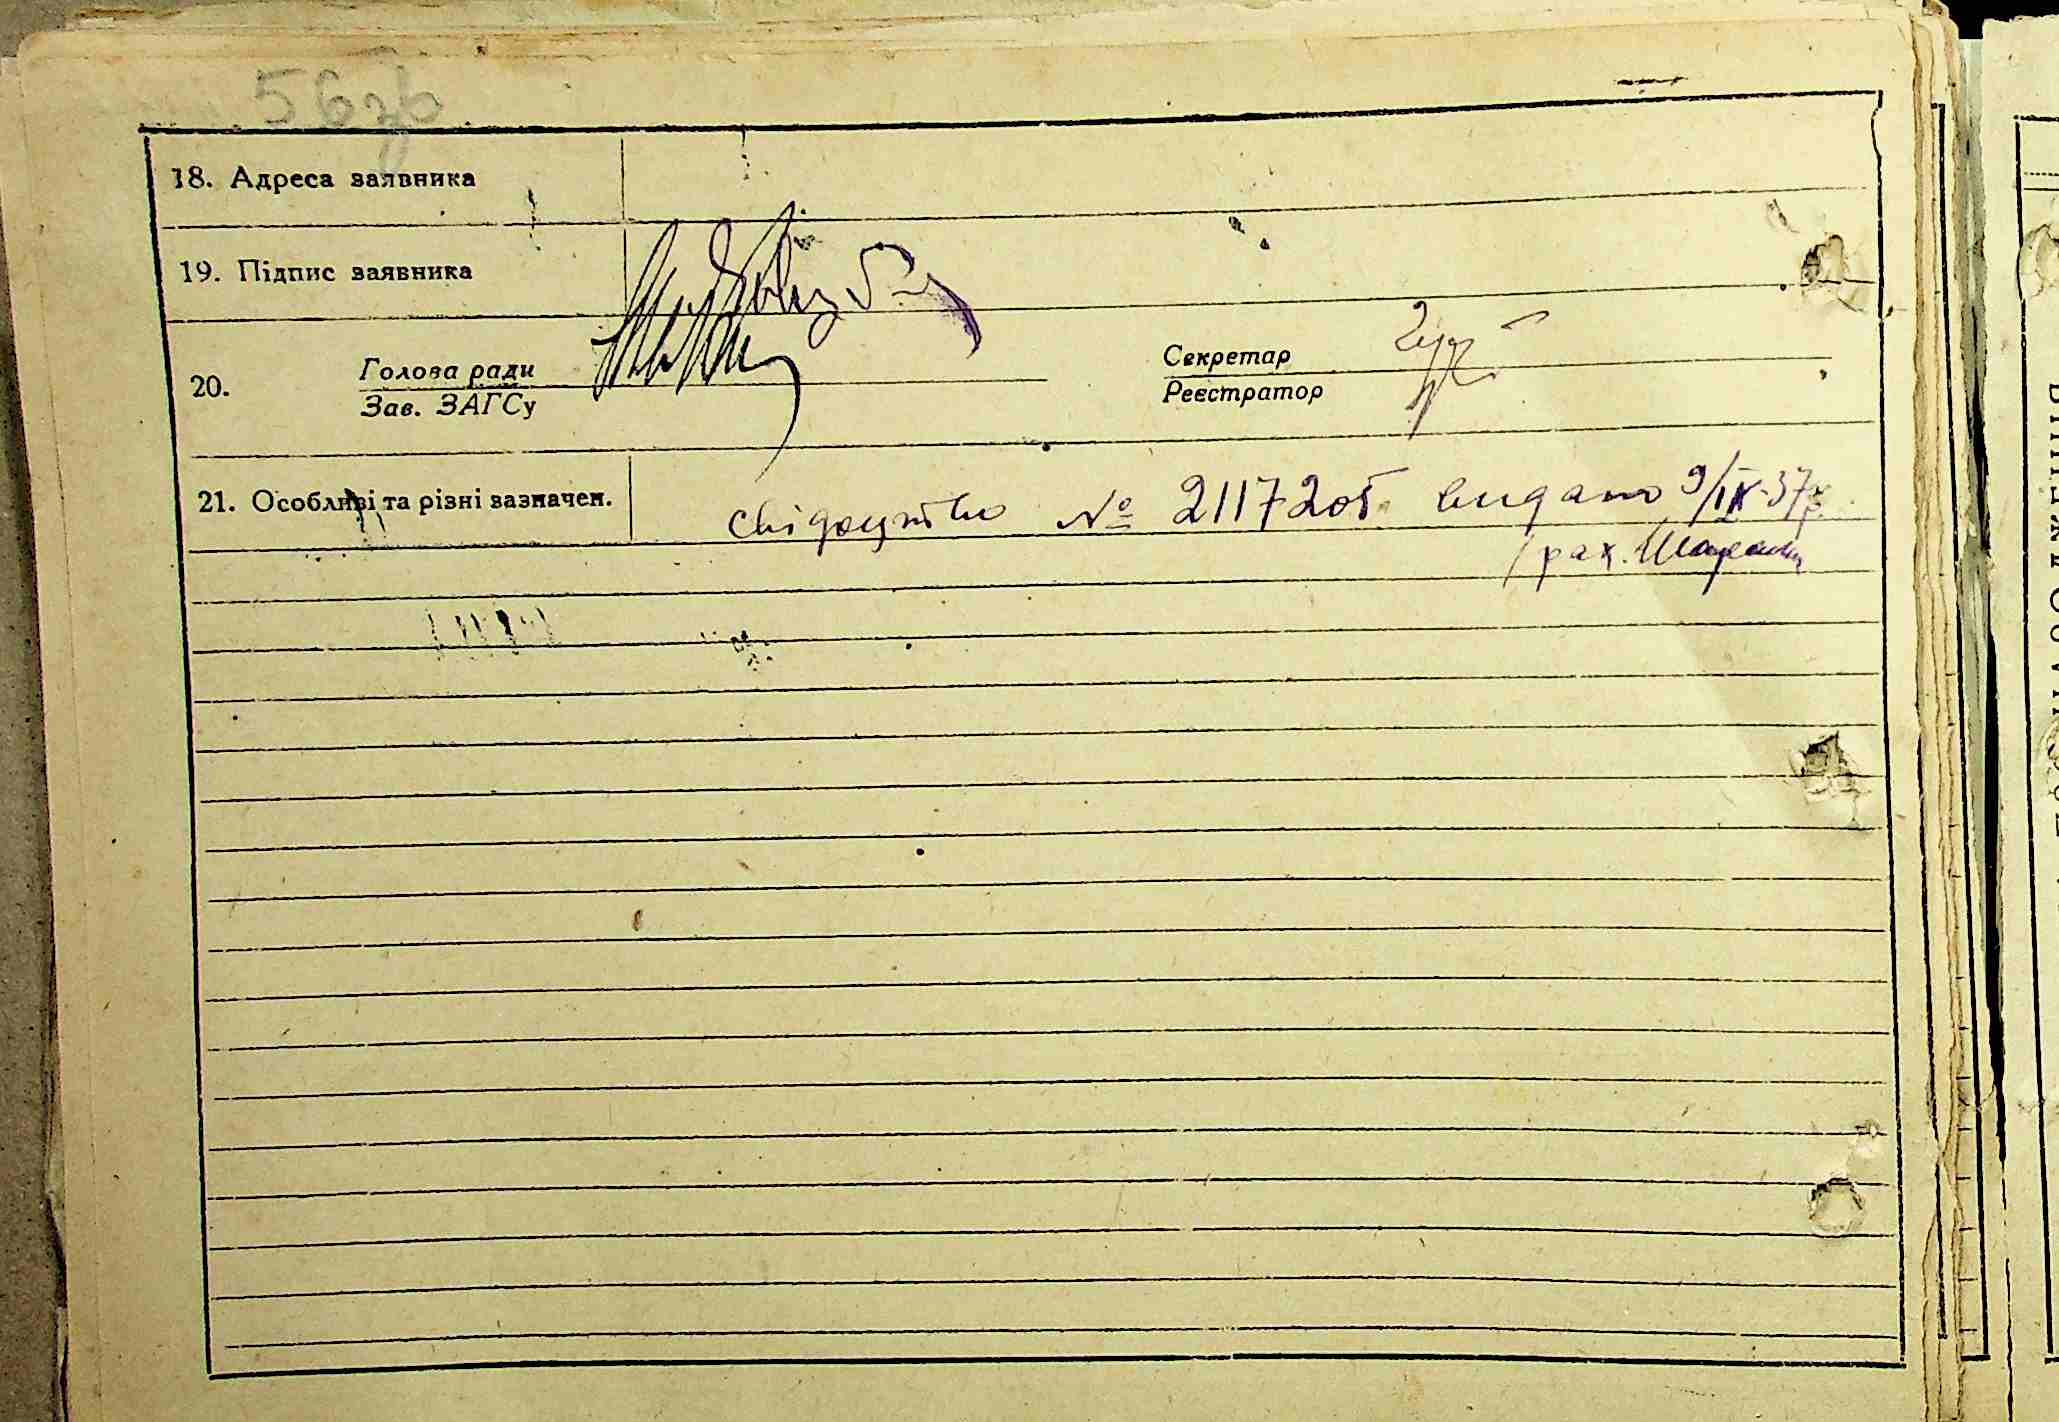 56зв
18. Адреса заявника
19. Підпис заявника
20. Голова ради
Зав. ЗАГСу
Секретар
Реєстратор
21. Особливі та різні зазначен. свідоцтво № 211720 видано 9/IX-37р.
/рах.